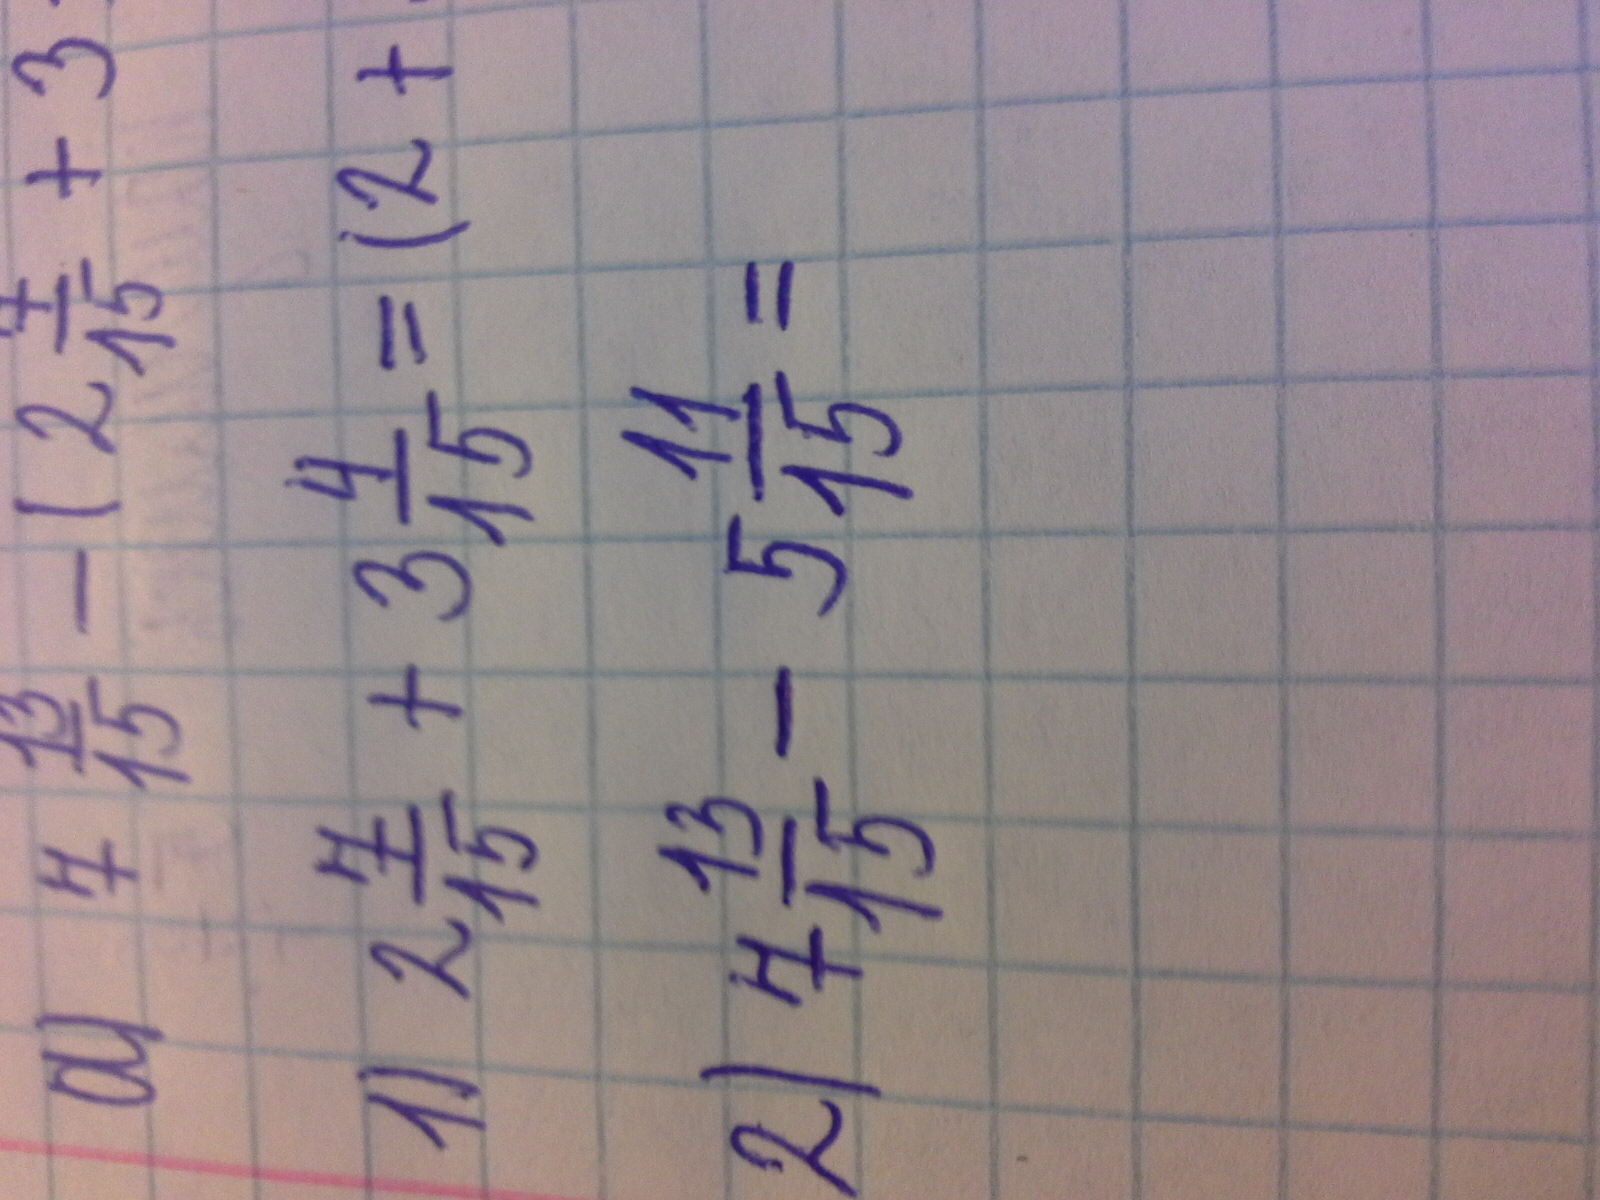 а) 7 13/15 - (2 7/15 + 3
1) 2 7/15 + 3 4/15 = (2 +
2) 7 13/15 - 5 11/15 =